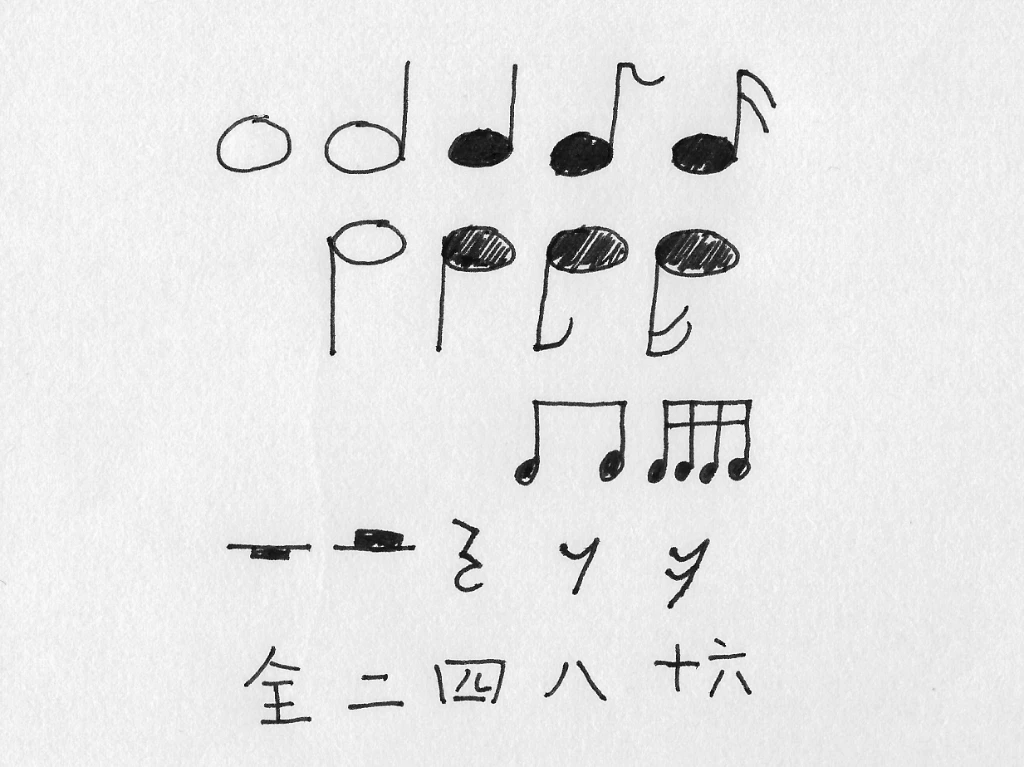 全 二 四 八 十六